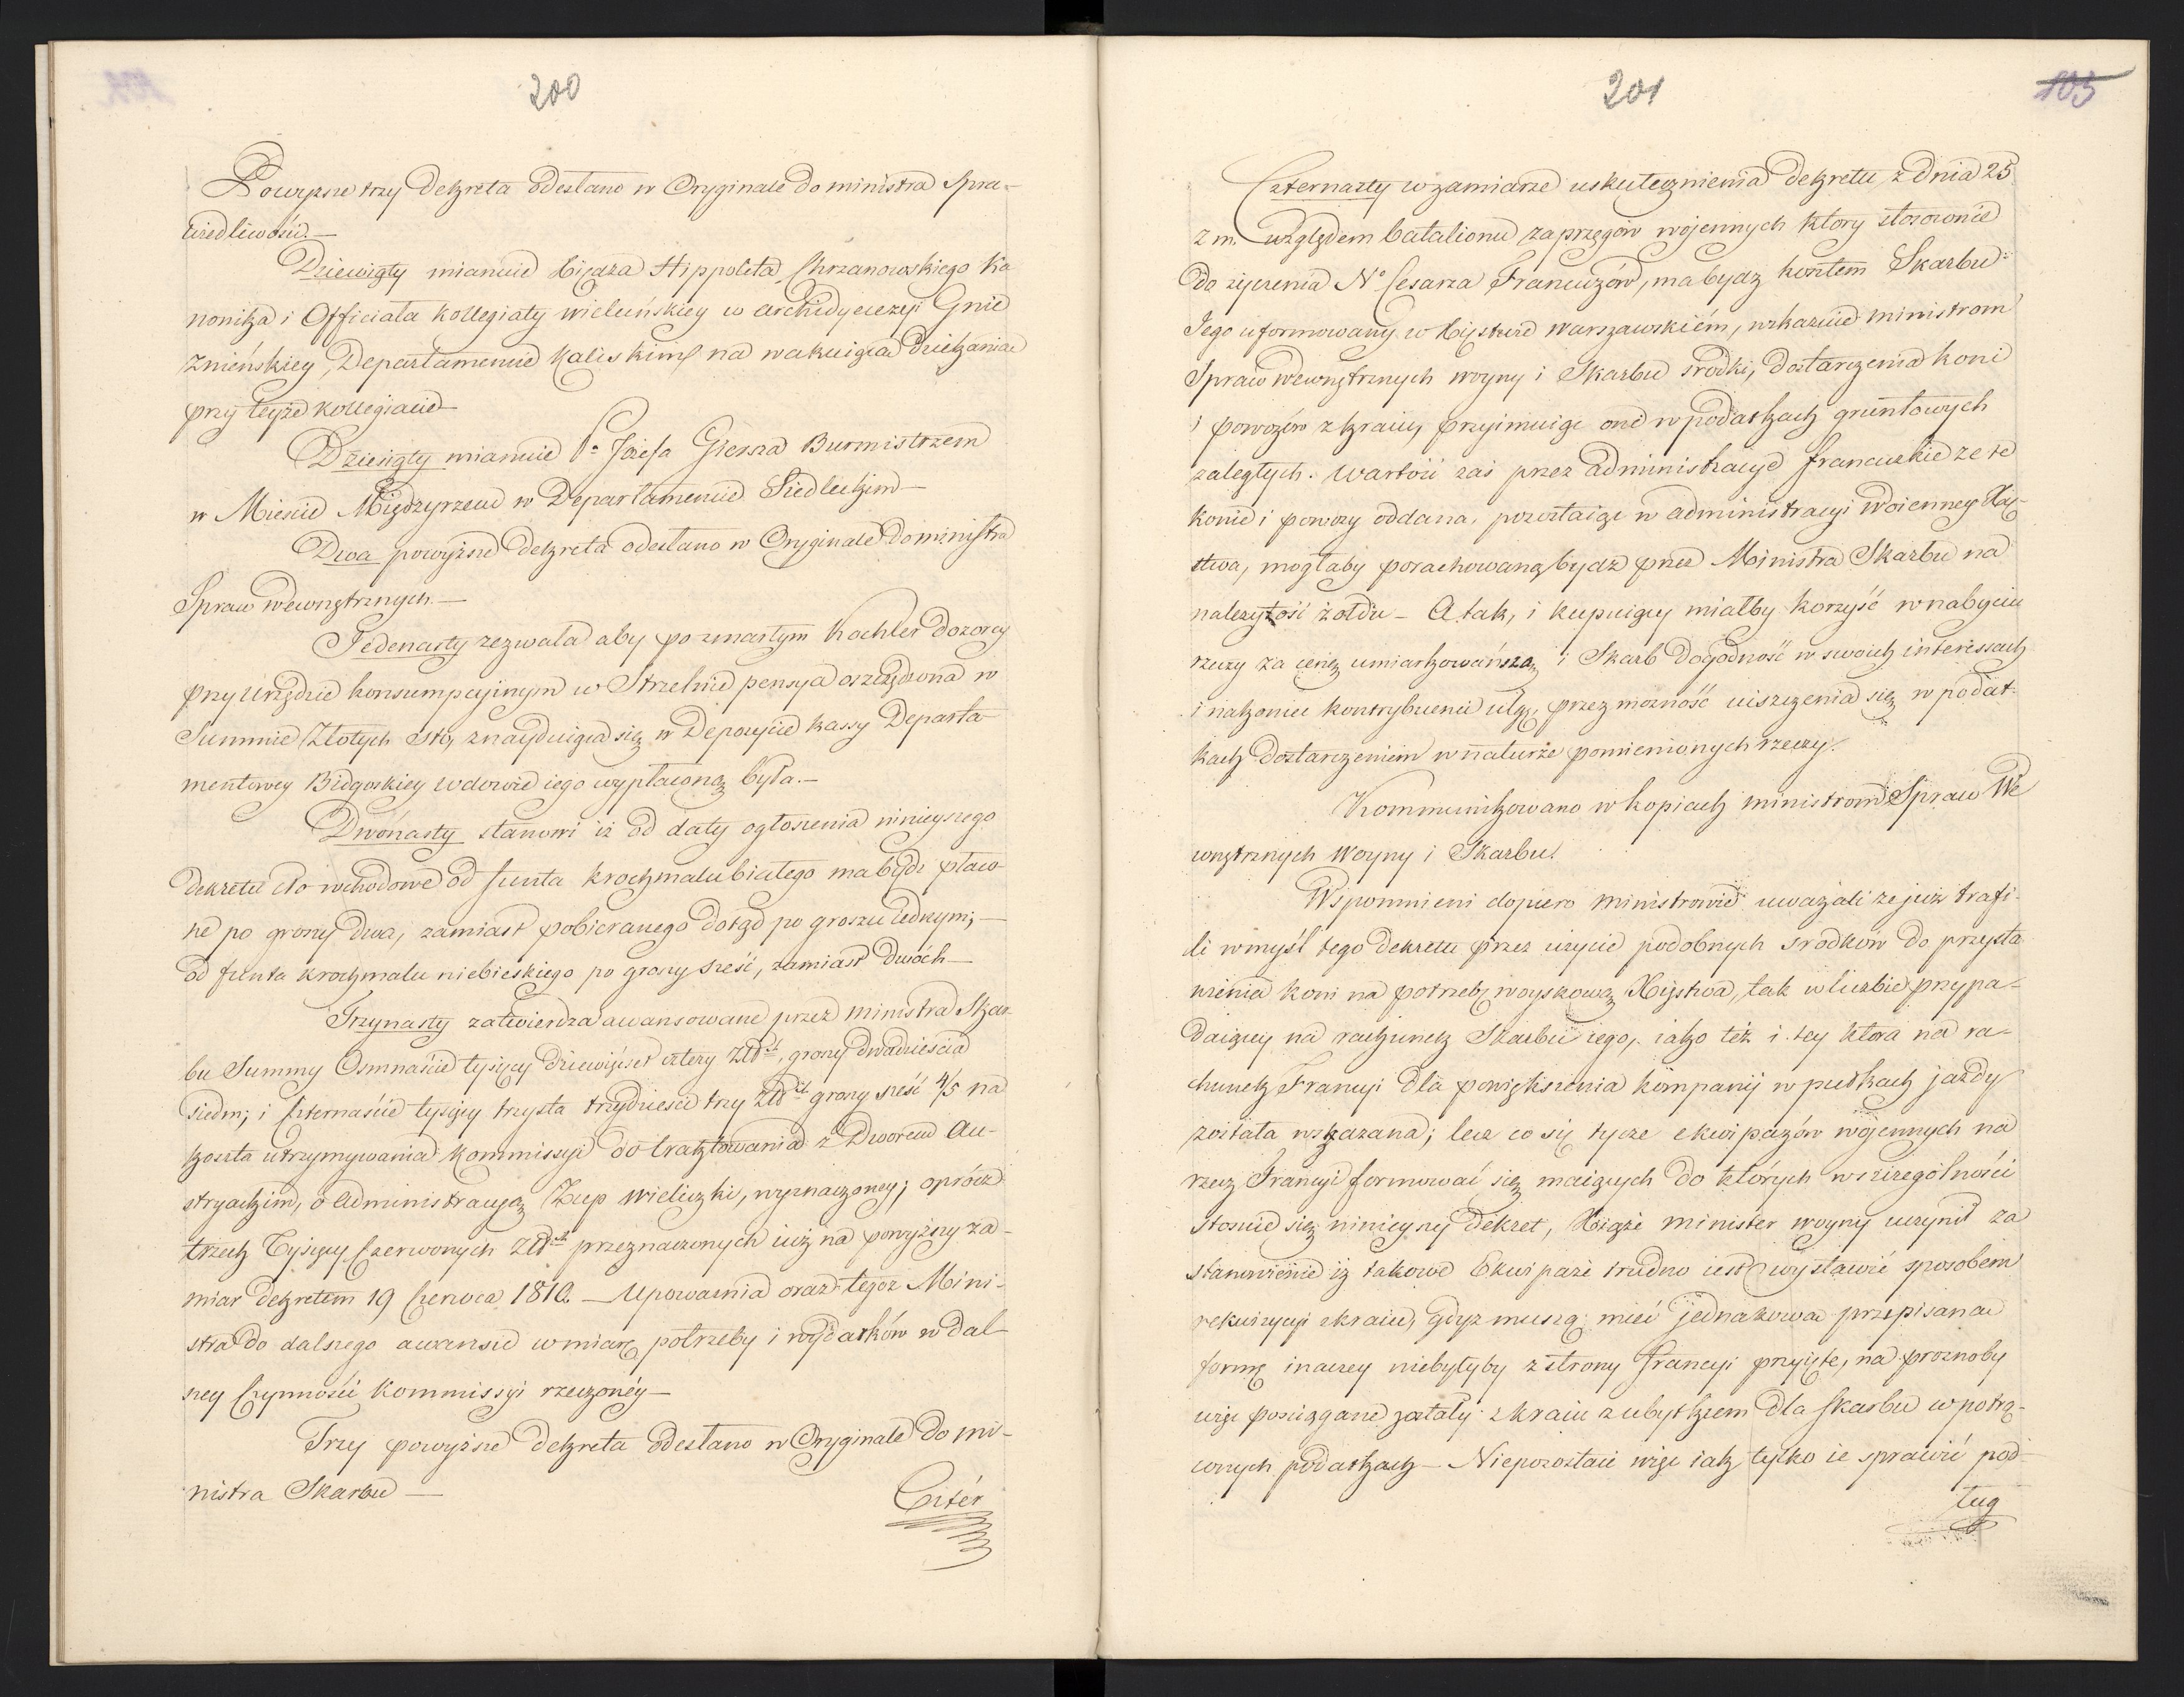 200
Powyższe trzy Dekreta odesłano w Oryginale do ministra Spra-
wiedliwości.—
Dziewiąty mianuie Xiędza Hippolita Chrzanowskiego Ka
nonika i Officiała kollegiaty wieluńskiey w archidyecezyi Gnie
znieńskiey, Departamencie Kaliskim na wakuiącą Dziekanią
przy teyże kollegiacie—
Dziesiąty mianuie Pa Józefa Burmistrzem
w Mieście Międzyrzecu w Departamencie Siedleckim—
Dwa powyższe Dekreta odesłano w Oryginale do ministra
Spraw wewnętrznych.—
Jedenasty zezwala aby po zmarłym Kochler Dozorcy
przy Urzędzie konsumpcyjnym w Strzelnie pensya oszczędzona w
Summie Złotych sto, znayduiąca się w Depozycie kassy Departa-
mentowey Bidgoskiey wdowie iego wypłaconą była.—
Dwónasty stanowi iż od daty ogłoszenia ninieyszego
dekretu cło wchodowe od funta krochmalu białego ma bydź płaco-
ne po groszy dwa, zamiast pobieranego dotąd po groszu iednym;—
od funta krochmalu niebieskiego po groszy sześć, zamiast dwóch—
Trzynasty zatwierdza awansowane przez ministra Skar-
bu Summy Osmnaście tysięcy dziewięćset cztery Złt., groszy dwadzieścia
siedm; i czternaście tysięcy trzysta trzydzieści trzy Złt. groszy sześć 4/5 na
koszta utrzymywania kommissyi do traktowania z Dworem Au-
stryackim, o administracyą Żup Wieliczki, wyznaczoney; oprócz
trzech Tysięcy Czerwonych Złt. przeznaczonych iuż na powyższy za-
miar dekretem 19 Czerwca 1810.— Upoważnia oraz tegoż Mini-
stra do dalszego awansu w miarę potrzeby i wydatków w dal-
szey Czynności kommissyi rzeczoney—
Trzy powyższe dekreta odesłano w Oryginale do mi-
nistra Skarbu—
Czter
201
103
Czternasty w zamiarze uskutecznienia dekretu z dnia 25
z m. względem batalionu zaprzęgów wojennych ktory stosownie
do życzenia No Cesarza Francuzów, ma bydz kosztem Skarbu
Jego uformowany w Xięstwie Warszawskiém, wskazuie ministrom
Spraw wewnętrznych woyny i Skarbu srodki, dostarczenia koni
i powozów z kraiu, przyimuiąc one w podatkach gruntowych
zaległych. Wartość zaś przez administracye francuzkie za te
konie i powozy oddana, pozostaiąc w administracyi Woienney Xię-
stwa, mogłaby porachowaną bydz przez Ministra Skarbu na
należytość żołdu — A tak, i kupuiący miałby korzyść w nabyciu
rzeczy za cenę umiarkowańszą, i Skarb dogodność w swoich interessach
i nakoniec kontrybuenci ulgę, przez możność uiszczenia się w podat-
kach dostarczeniem w naturze pomienionych rzeczy.
Kommunikowano w kopiach ministrom Spraw We
wnętrznych Woyny i Skarbu.
Wspomnieni dopiero ministrowie uważali że już trafi-
li w myśl tego dekretu przez użycie podobnych srodków do przysta
wienia koni na potrzebę woyskową Xięstwa, tak w liczbie przypa-
daiącey na rachunek Skarbu iego, iako téż i tey ktora na ra-
chunek Francyi dla powiększenia kompanij w pułkach jazdy
została wskazana; lecz co się tycze ekwipażów wojennych na
rzecz Francyi formować się maiących do których w szczególności
stosuie się ninieyszy dekret, Xiąże minister woyny uczynił za
stanowienie iż takowe Ekwipaże trudno iest wystawić sposobem
rekwizycyi z kraiu, gdyż muszą mieć jednakową przepisaną
formę inaczey niebyłyby z strony Francyi przyięte, na proznoby
więc pościągane zostały z kraiu z ubytkiem dla skarbu w potrą-
conych podatkach— Niepozostaie więc iak tylko ie sprawić pod-
ług